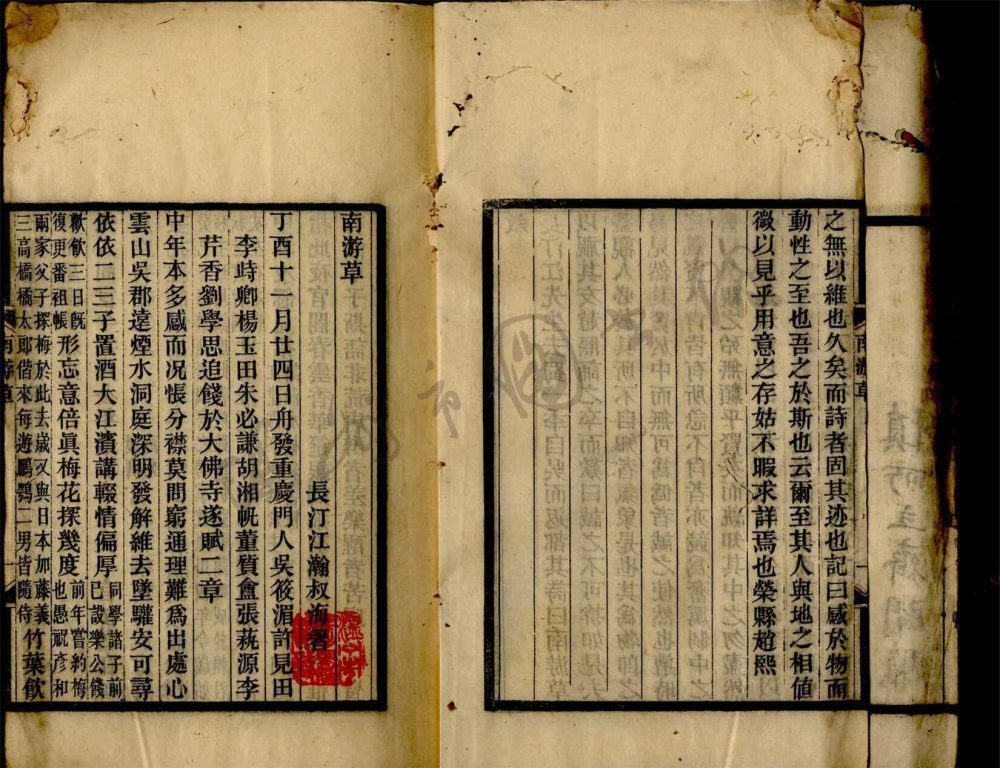 之無以維也久矣而詩者固其迹也記曰感於物而
動性之至也吾之於斯也云爾至其人與地之相値
微以見乎用意之存姑不暇求詳焉也榮縣趙熙
南游草
南游草
長汀江瀚叔海著
丁酉十一月廿四日舟發重慶門人吳筱湄許見田
李時卿楊玉田朱必謙胡湘帆董質盦張蓺源李
芹香劉學思追餞於大佛寺遂賦二章
中年本多感而况悵分襟莫問窮通理難爲出處心
雲山吳郡遠煙水洞庭深明發解維去墜驩安可尋
依依二三子置酒大江濱講輟情偏厚同學諸子前已設樂公餞
歡飲三日旣復更番祖帳形忘意倍眞梅花探幾度前年嘗約梅也愚祝彥和
兩家父子探梅於此去歲又與日本加藤義三高橋橘太郞偕來每遊鵬鶚二男皆隨侍竹葉飮